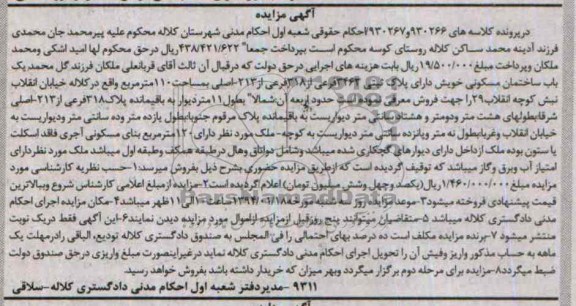 آگهی مزایده
درپرونده کلاسه های ۹۳۰۲۶۶و۹۳۰۲۶۷/احکام حقوقی شعبه اول احکام مدنی شهرستان کلاله محکوم علیه پیرمحمد جان محمدی
فرزند آدینه محمد ساکن کلاله روستای کوسه محکوم است بپرداخت جمعا" ۴۳۸/۴۲۱/۶۲۲ریال درحق محکوم لها امید اشکی ومحمد
ملکان وپرداخت مبلغ۱۹/۵۰۰/۰۰۰ریال بابت هزینه های اجرایی درحق دولت که درقبال آن ثالث آقای قربانعلی ملکان فرزند گل محمد یک
باب ساختمان مسکونی خویش دارای پلاک ثبتی ۳۴۶۳فرعی از۳۱۸فرعی از۲۱۳-اصلی بمساحت۱۱۰مترمربع واقع درکلاله خیابان انقلاب
نبش کوچه انقلاب۲۹را جهت فروش معرفی حدود اربعه آن:شمالا" بطول۱۱متردیوار به باقیمانده پلاک۳۱۸فرعی از۲۱۳-اصلی
شرقابطولهای هشت متر ودومتر و هشتاد متر دیواریست به باقیمانده پلاک مرقوم جنوبابطول یازده متر وده سانتی متر ودیواریست به
خیابان انقلاب وغربابطول نه متر وپانزده سانتی متر ودیواریست به کوچه-ملک مورد نظر دارای۱۲۰مترمربع بنای مسکونی آجری فاقد اسکلت
یا ستون بوده ملک ازداخل دارای دیوارهای گچکاری شده میباشد وشامل دواتاق وهال درطبقه همکف وطبقه اول میباشد ملک مورد نظر دارای
امتیاز آب وبرق وگاز میباشد که توقیف گردیده است که ازطریق مزایده حضوری بشرح ذیل بفروش میرسد:۱-حسب نظریه کارشناسی مورد
مزایده مبلغ ۱/۴۶۰/۰۰۰/۰۰۰ریال(یکصد وچهل وشش میلیون تومان) اعلام گردیده است۲-مزایده ازمبلغ اعلامی کارشناس شروع وبالاترین
قیمت پیشنهادی فروخته میشود۳-موعد ظهر میباشد۴-مکان مزایده اجرای احکام
مدنی دادگستری کلاله میباشد ۵-متقاضیان میتوانند پنج روزقبل ازمزایده ازاموال مورد مزایده دیدن نمایند۶-این آگهی فقط دریک نوبت
منتشر میشود ۷-برنده مزایده مکلف است ده درصد بهای احتمالی را فی المجلس به صندوق دادگستری کلاله تودیع، الباقی رادرمهلت یک
ماهه به حساب مذکور واریز وفیش آن را تحویل اجرای احکام مدنی دادگستری کلاله نماید درغیراینصورت مبلغ واریزی درحق صندوق دولت
ضبط میگردد۸-مزایده برای مرحله دوم برگزار میگردد وبهر میزان که خریدار داشته باشد بفروش خواهد رسید.
۹۳۱۱ -مدیردفتر شعبه اول احکام مدنی دادگستری کلاله-سلاقی